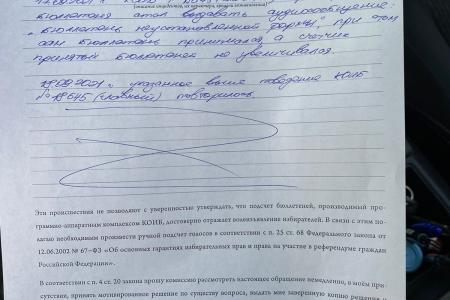 бюллетеня стал выдавать аудиосообщение:
"бюллетень неустановленной формы", при этом
сам бюллетень принимался, а счетчик
принятых бюллетеней не увеличивался.
18.09.2021 г. указанное выше поведение КОИБ
повторилось.
Эти происшествия не позволяют с уверенностью утверждать, что подсчет бюллетеней, производимый про-
граммно-аппаратным комплексом КОИБ, достоверно отражает волеизъявление избирателей. В связи с этим по-
лагаю необходимым произвести ручной подсчет голосов в соответствии с п. 25 ст. 68 Федерального закона от
12.06.2002 № 67–ФЗ «Об основных гарантиях избирательных прав и права на участие в референдуме граждан
Российской Федерации».
В соответствии с п. 4 ст. 20 закона прошу комиссию рассмотреть настоящее обращение немедленно, в моём при-
сутствии, принять мотивированное решение по существу вопроса, выдать мне заверенную копию решения и